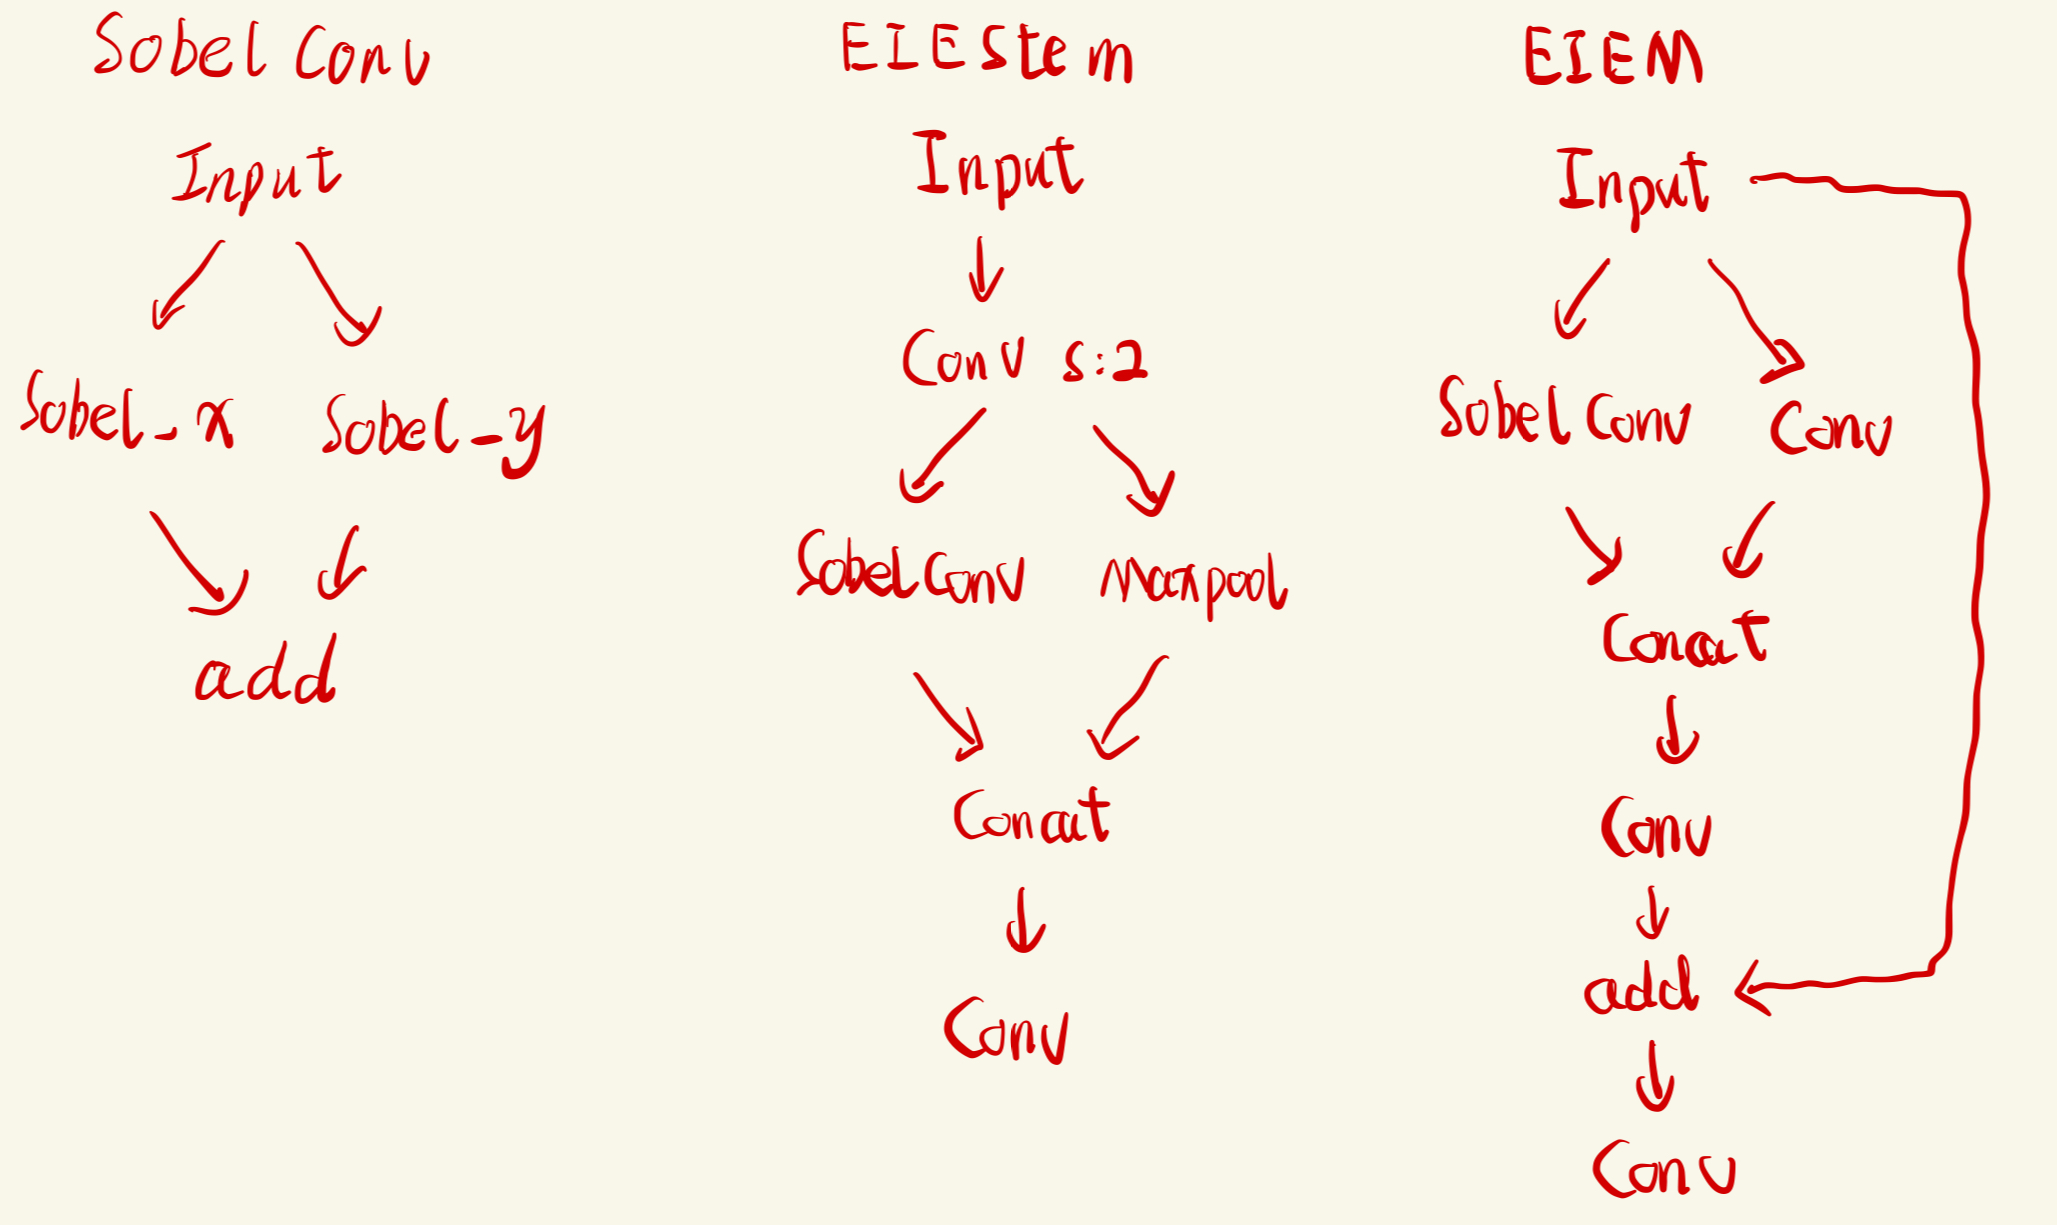 Sobel Conv
Input
Sobel_x Sobel_y
add
EIEStem
Input
Conv s:2
SobelConv Maxpool
Concat
Conv
EIEM
Input
Sobel Conv Conv
Concat
Conv
add
Conv